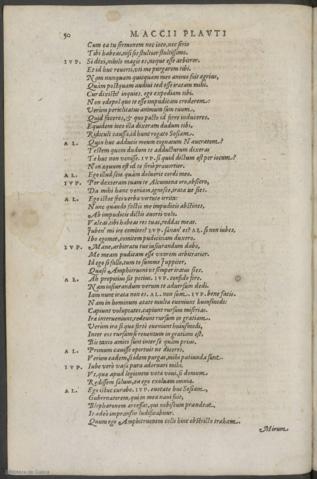 50 M. ACCII PLAVTI
Cum ea tu sermonem nec ioco, nec serio
Tibi habeas, nisi sis stultior stultissimo.
IVP. Si dixi, nihilo magis es, neque esse arbitror.
Et id huc reuerti, uti me purgarem tibi.
Nam nunquam quicquam meo animo fuit ægrius,
Quàm postquam audiui ted esse iratam mihi.
Cur dixisti? inquies. ego expediam tibi.
Non edepol quo te esse impudicam crederem:
Verùm periclitatus animum sum tuum,
Quid faceres, & quo pacto id ferre induceres.
Equidem ioco illa dixeram dudum tibi,
Ridiculi caussa, id hunc rogato Sosiam.
AL. Quin huc adducis meum cognatum Naucratem?
Testem quem dudum te adducturum dixeras
Te huc non uenisse. IVP. si quid dictum est per iocum?
Non æquum est id te serio præuortier.
AL. Ego illud scio quàm doluerit cordi meo.
IVP. Per dexteram tuam te Alcumena oro, obsecro,
Da mihi hanc ueniam, ignosce, irata ne sies.
AL. Ego istæc feci uerba uirtute irrita:
Nunc quando factis me impudicis abstines,
Ab impudicis dictis auorti uolo.
Valeas, tibi habeas res tuas, reddas meas.
Iuben' mi ire comites? IVP. sanan' es? AL. si non iubes,
Ibo egomet, comitem pudicitiam duxero.
IVP. Mane, arbitratu tuo iusiurandum dabo,
Me meam pudicam esse uxorem arbitrarier.
Id ego si fallo, tum te summe Iuppiter,
Quæso Amphitruoni ut semper iratus sies.
AL. Ah propitius sit potius. IVP. confido fore.
Nam iusiurandum uerum te aduersum dedi.
Iam nunc irata non es. AL. non sum. IVP. bene facis.
Nam in hominum ætate multa eueniunt huiusmodi:
Capiunt uoluptates, capiunt rursum miserias.
Iræ interueniunt, redeunt rursum in gratiam.
Verùm iræ si quæ fortè eueniunt huiusmodi,
Inter eos rursum si reuentum in gratiam est,
Bis tanto amici sunt inter se quàm prius.
AL. Primum cauisse oportuit ne diceres,
Verùm eadem, si idem purgas, mihi patiunda sunt.
IVP. Iube uerò uasa pura adornari mihi,
Vt, quæ apud legionem uota uoui, si domum
Redissem saluus, ea ego exoluam omnia.
AL. Ego istuc curabo. IVP. euocate huc Sosiam.
Gubernatorem, qui in mea naui fuit,
Blepharonem arcessat, qui nobiscum prandeat.
Is adeo impransus ludificabitur,
Quum ego Amphitruonem collo hinc obstricto traham.
Mirum